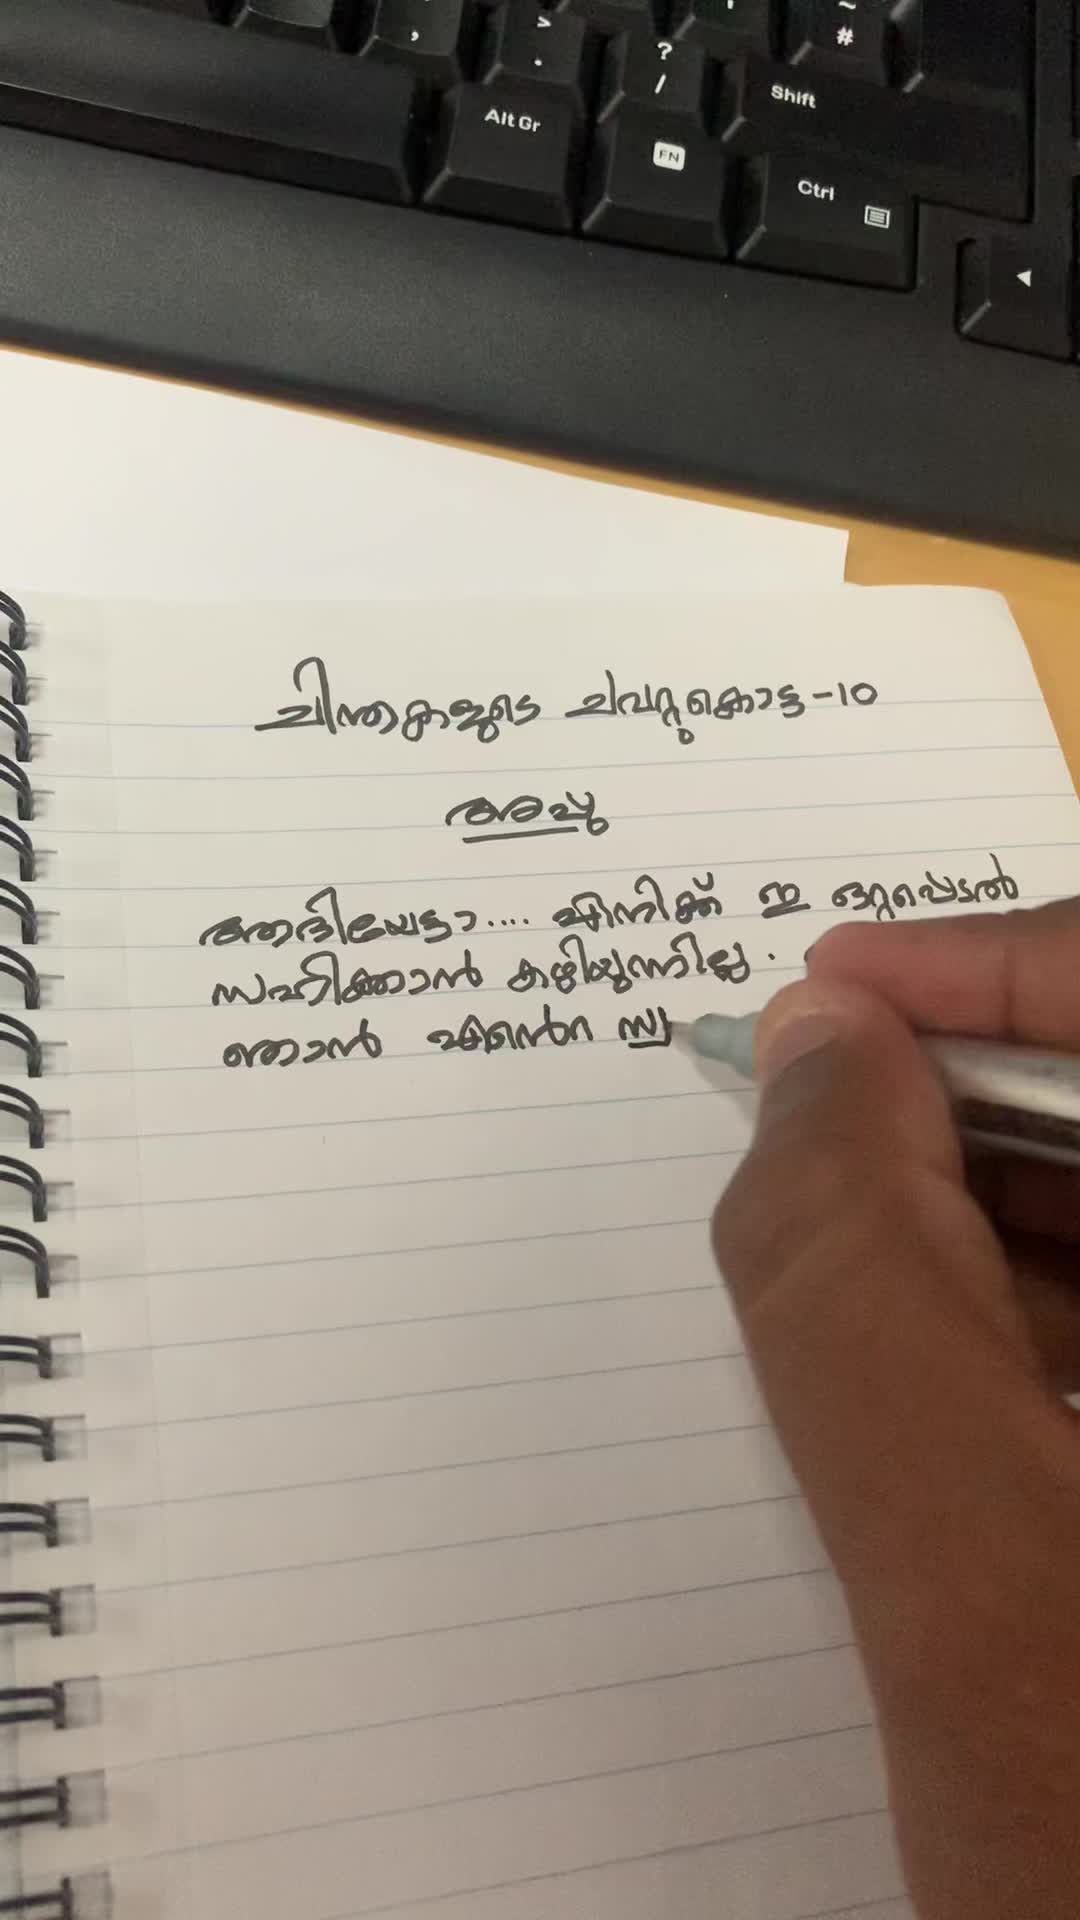 >
,
.
?
/
~
#
Shift
Alt Gr
FN
Ctrl
ചിന്തകളുടെ ചവറ്റുകൊട്ട -10
അപ്പു
ആദിയേട്ടാ.... എനിക്ക് ഈ ഒറ്റപ്പെടൽ
സഹിക്കാൻ കഴിയുന്നില്ല.
ഞാൻ എൻ്റെ സ്വ